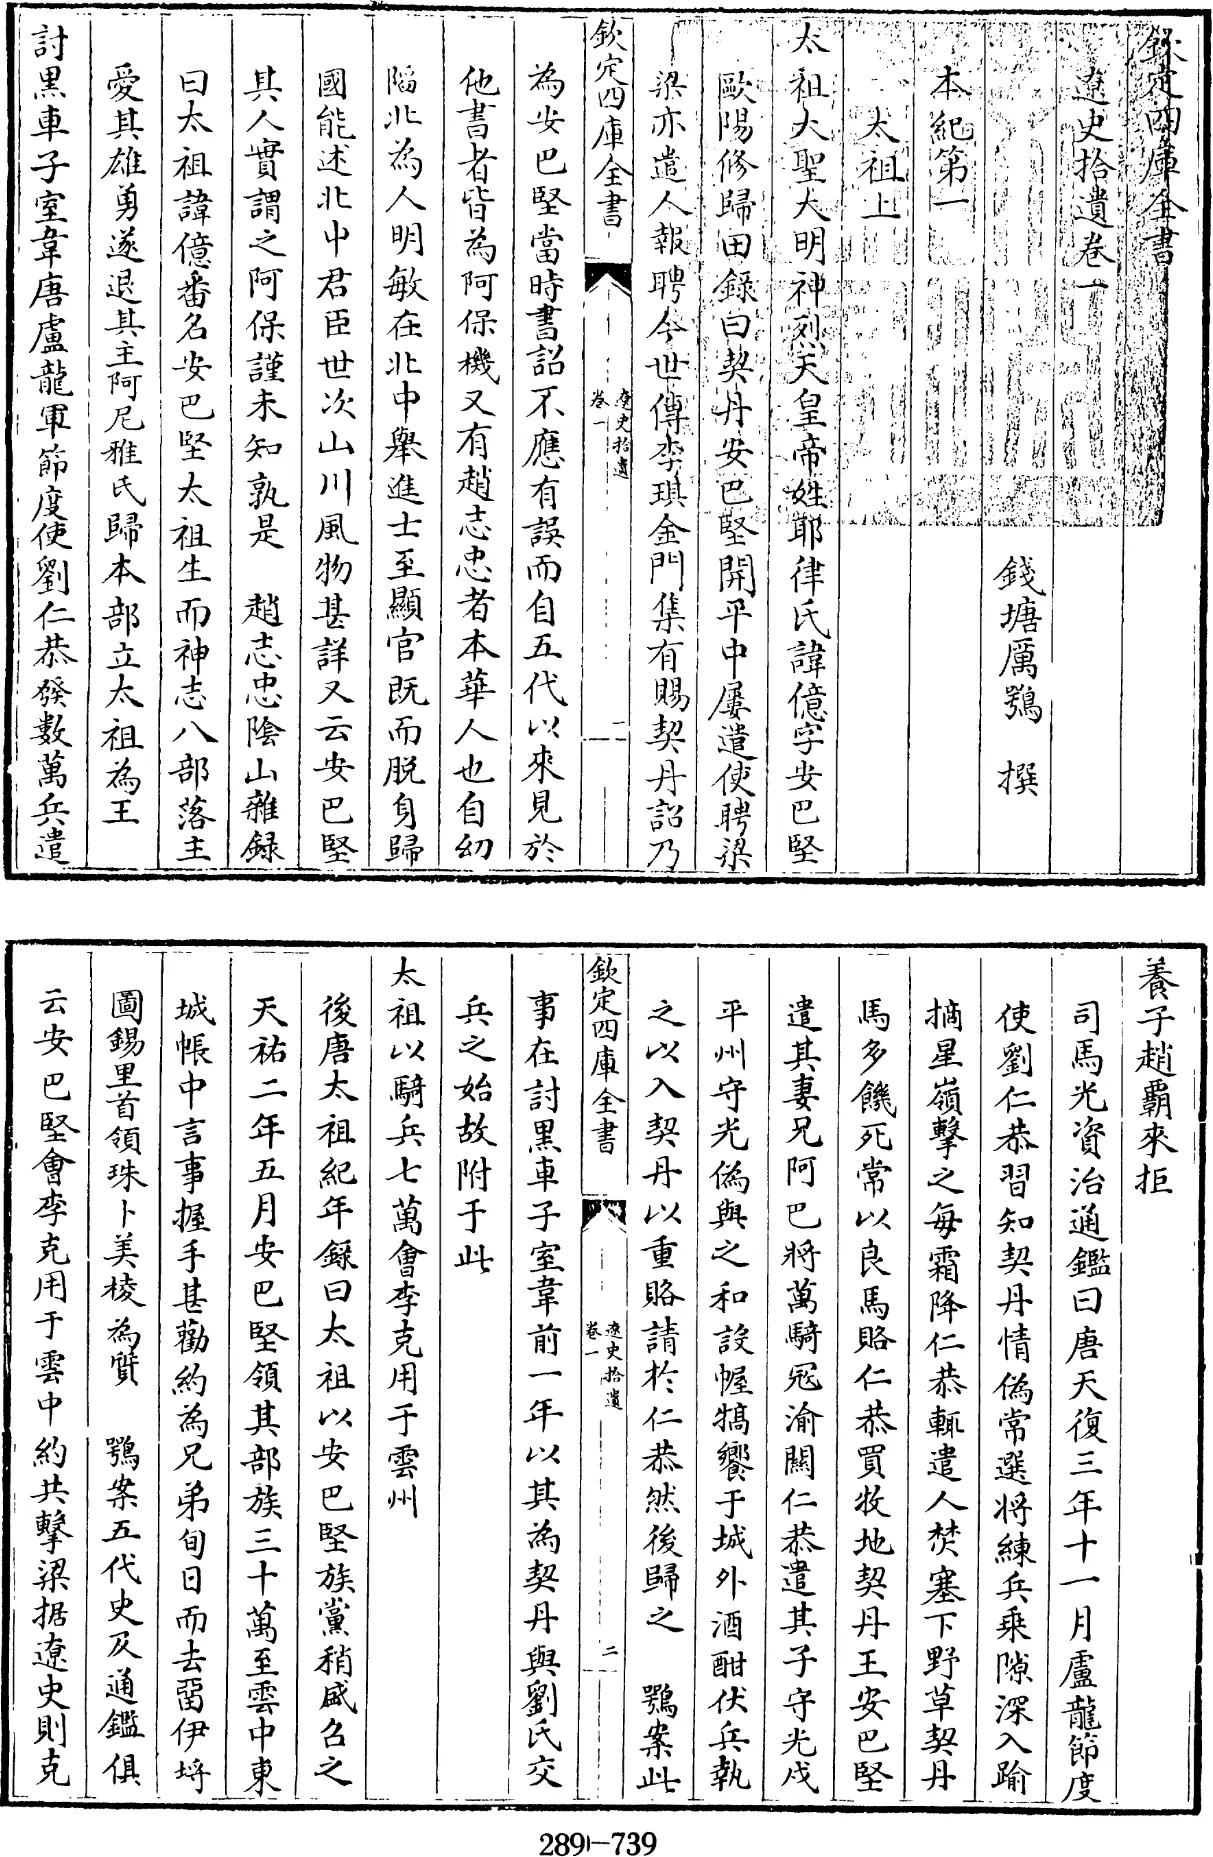 欽定四庫全書
遼史拾遺卷一
錢塘厲鶚 撰
本紀第一
太祖上
太祖大聖大明神烈天皇帝姓耶律氏諱億字安巴堅
歐陽修歸田錄曰契丹安巴堅開平中屢遣使聘梁
梁亦遣人報聘今世傳李琪金門集有賜契丹詔乃
欽定四庫全書
遼史拾遺
卷一
一
為安巴堅當時書詔不應有誤而自五代以來見於
他書者皆為阿保機又有趙志忠者本華人也自幼
陷北為人明敏在北中舉進士至顯官既而脱身歸
國能述北中君臣世次山川風物甚詳又云安巴堅
其人實謂之阿保謹未知孰是 趙志忠陰山雜録
曰太祖諱億番名安巴堅太祖生而神志八部落主
愛其雄勇遂退其主阿尼雅氏歸本部立太祖為王
討黒車子室韋唐盧龍軍節度使劉仁恭發數萬兵遣
養子趙霸來拒
司馬光資治通鑑曰唐天復三年十一月盧龍節度
使劉仁恭習知契丹情偽常選將練兵乘隙深入踰
摘星嶺擊之每霜降仁恭輒遣人焚塞下野草契丹
馬多饑死常以良馬賂仁恭買牧地契丹王安巴堅
遣其妻兄阿巴將萬騎冦渝關仁恭遣其子守光戍
平州守光偽與之和設幄犒饗于城外酒酣伏兵執
之以入契丹以重賂請於仁恭然後歸之 鶚案此
欽定四庫全書
遼史拾遺
卷一
二
事在討黒車子室韋前一年以其為契丹與劉氏交
兵之始故附于此
太祖以騎兵七萬會李克用于雲州
後唐太祖紀年録曰太祖以安巴堅族黨稍盛召之
天祐二年五月安巴堅領其部族三十萬至雲中東
城帳中言事握手甚歡約為兄弟旬日而去留伊埒
圖錫里首領珠卜美棱為質 鶚案五代史及通鑑俱
云安巴堅會李克用于雲中約共擊梁据遼史則克
289-739